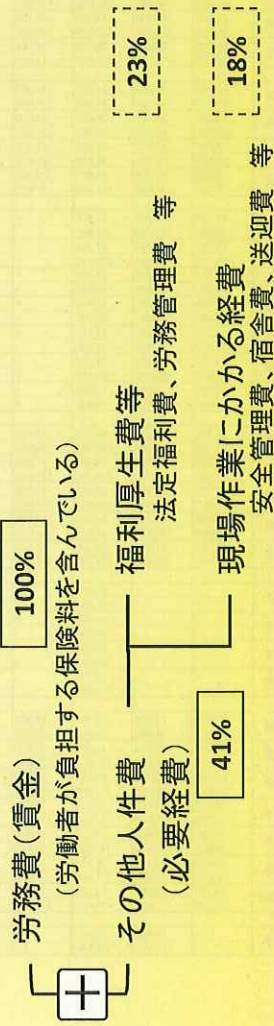 労務費(賃金)
100%
(労働者が負担する保険料を含んでいる)
+
その他人件費
(必要経費)
41%
福利厚生費等
23%
法定福利費、労務管理費 等
現場作業にかかる経費
18%
安全管理費、宿舎費、送迎費 等